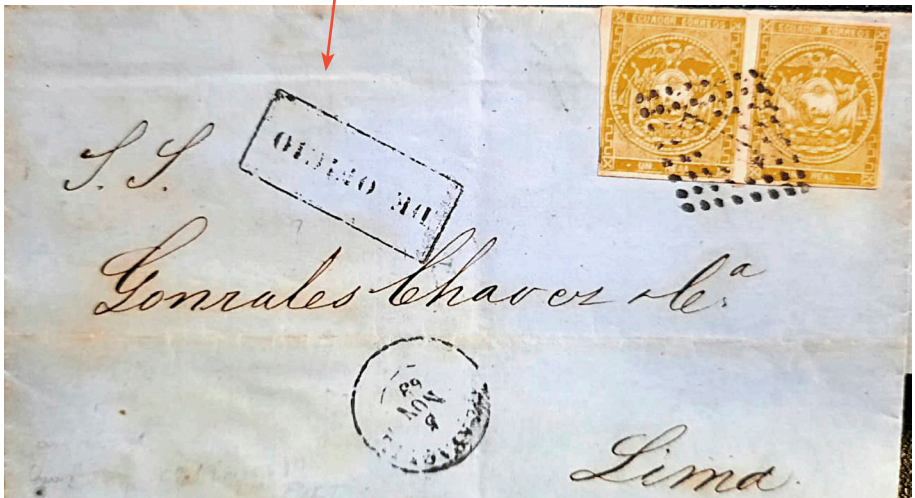 ECUADOR CORREOS ECUADOR CORREOS
UN REAL
DE OFICIO
S. S.
Gonzales Chavez & Cª
8
NOV
Lima.